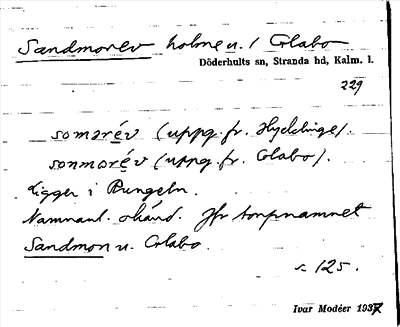 Sandmorev holme u. / Glabo
Döderhults sn, Stranda hd, Kalm. l.
229
somarév (uppg. fr. Hycklinge).
sonmorév (uppg. fr. Glabo).
Ligger i Rungeln.
Namnanl. okänd. Jfr torpnamnet
Sandmon u. Glabo.
s. 125.
Ivar Modéer 1937